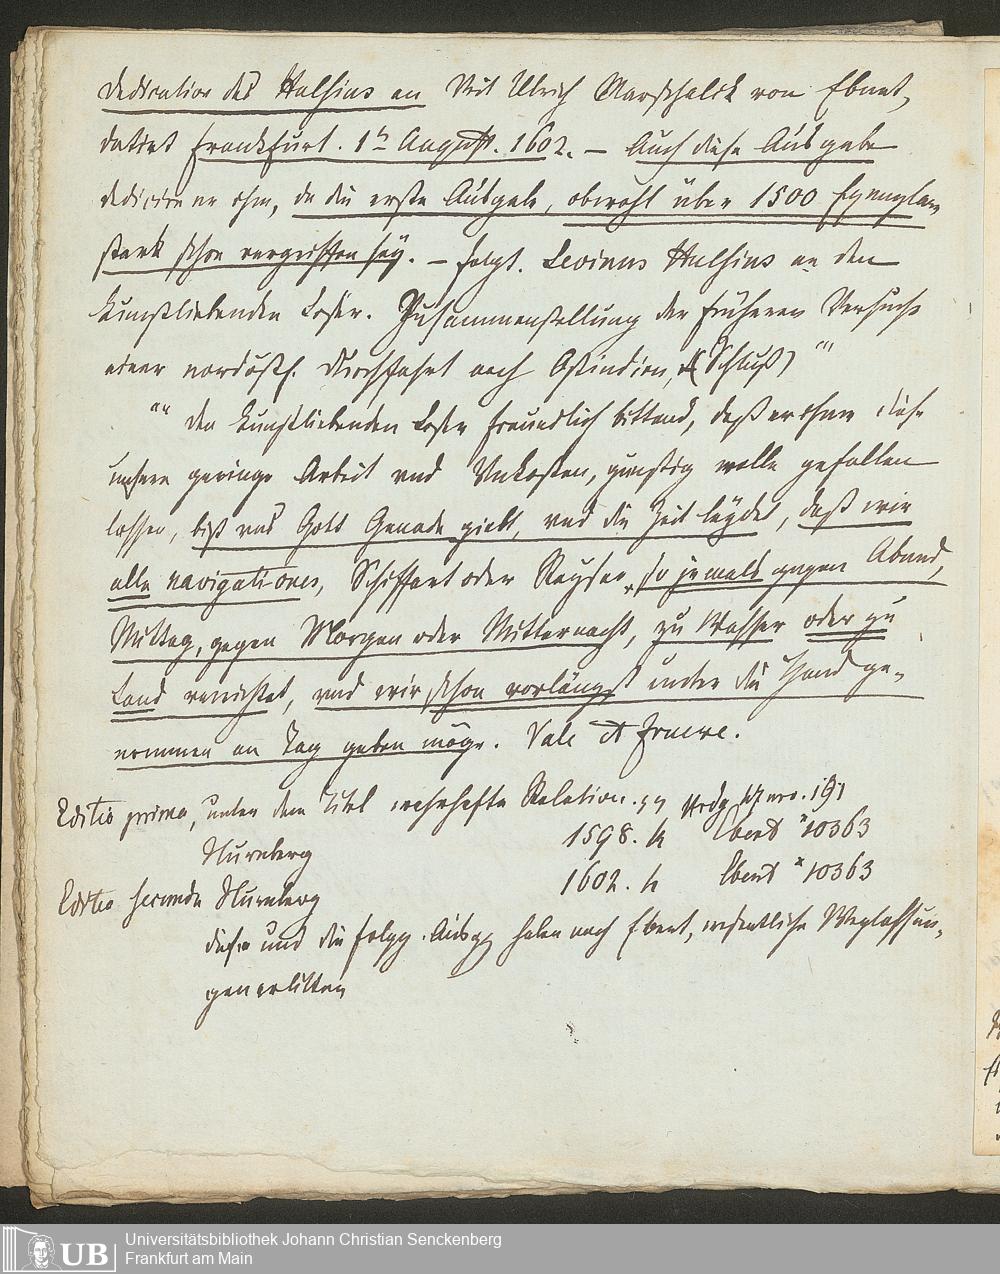 Dedication des Hulsius an Veit Ulrich Marschalck von Ebnet,
datirt Frankfurt. 1n August. 1602. – Auch diese Ausgabe
dedicire er ihm, da die erste Ausgabe, obwohl über 1500 Exemplare
stark schon vergriffen sey. – folgt. Levinus Hulsius an den
Kunstliebenden Leser. Zusammenstellung der früheren Versuche
einer nordöstl. Durchfahrt nach Ostindien, (Schluß) "'
"" den Kunstliebenden Leser freundlich bittend, daß er ihme diese
unsere geringe Arbeit vnd Vnkosten, günstig wolle gefallen
lassen, biß vns Gott Genade giebt, vnd die Zeit leydet, daß wir
alle navigationes, Schiffart oder Reysen, so jemals gegen Abend,
Mittag, gegen Morgen oder Mitternacht, zu Wasser oder zu
Land verrichtet, vnd wir schon vorlängst unter die Hand ge-
nommen an Tag geben möge. Vale et fruere.
Editio prima, unter dem Titel wahrhafte Relation. 191
Nürnberg 1598. 4 Ebert * 10363
Editio secunda Nürnberg 1602. 4 Ebert * 10363
diese und die folgg. Ausgg haben nach Ebert, wesentliche Weglassun-
gen erlitten
Universitätsbibliothek Johann Christian Senckenberg
Frankfurt am Main
UB